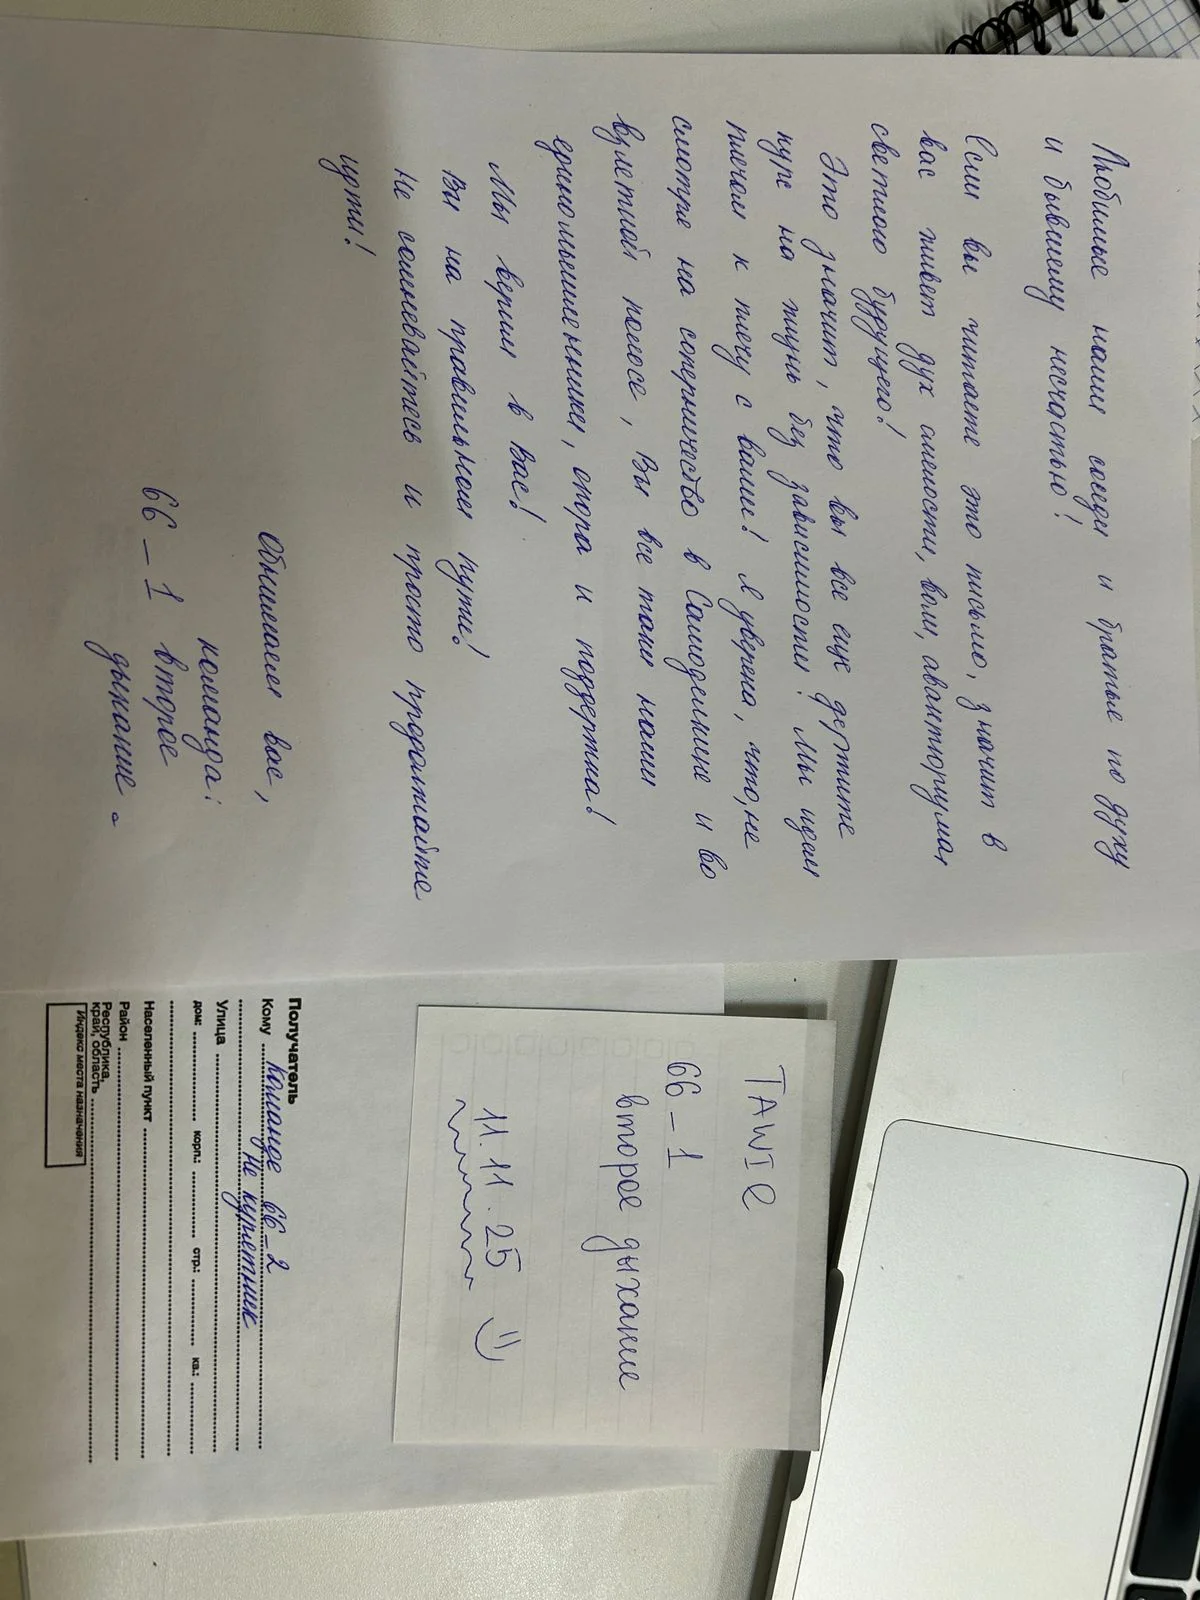 Любимые наши соседи и братья по духу
и бывшему несчастью!
Если вы читаете это письмо, значит в
вас живет дух смелости, воли, авантюризма,
светлого будущего!
Это значит, что вы все еще держите
курс на жизнь без зависимости! Мы идем
плечом к плечу с вами! Я уверена, что, не
смотря на соперничество в Самоделкине и во
взлетной полосе, Вы все таки наши
единомышленники, опора и поддержка!
Мы верим в Вас!
Вы на правильном пути!
Не сомневайтесь и просто продолжайте
идти!
Обнимаем вас,
команда:
66_1 второе
дыхание.
TAWIE
66_1
второе дыхание
11.11.25
Получатель
Кому Команде 66_2
Не курятник
Улица
дом: корп.: стр.: кв.:
Населенный пункт
Район
Республика,
край, область
Индекс места назначения